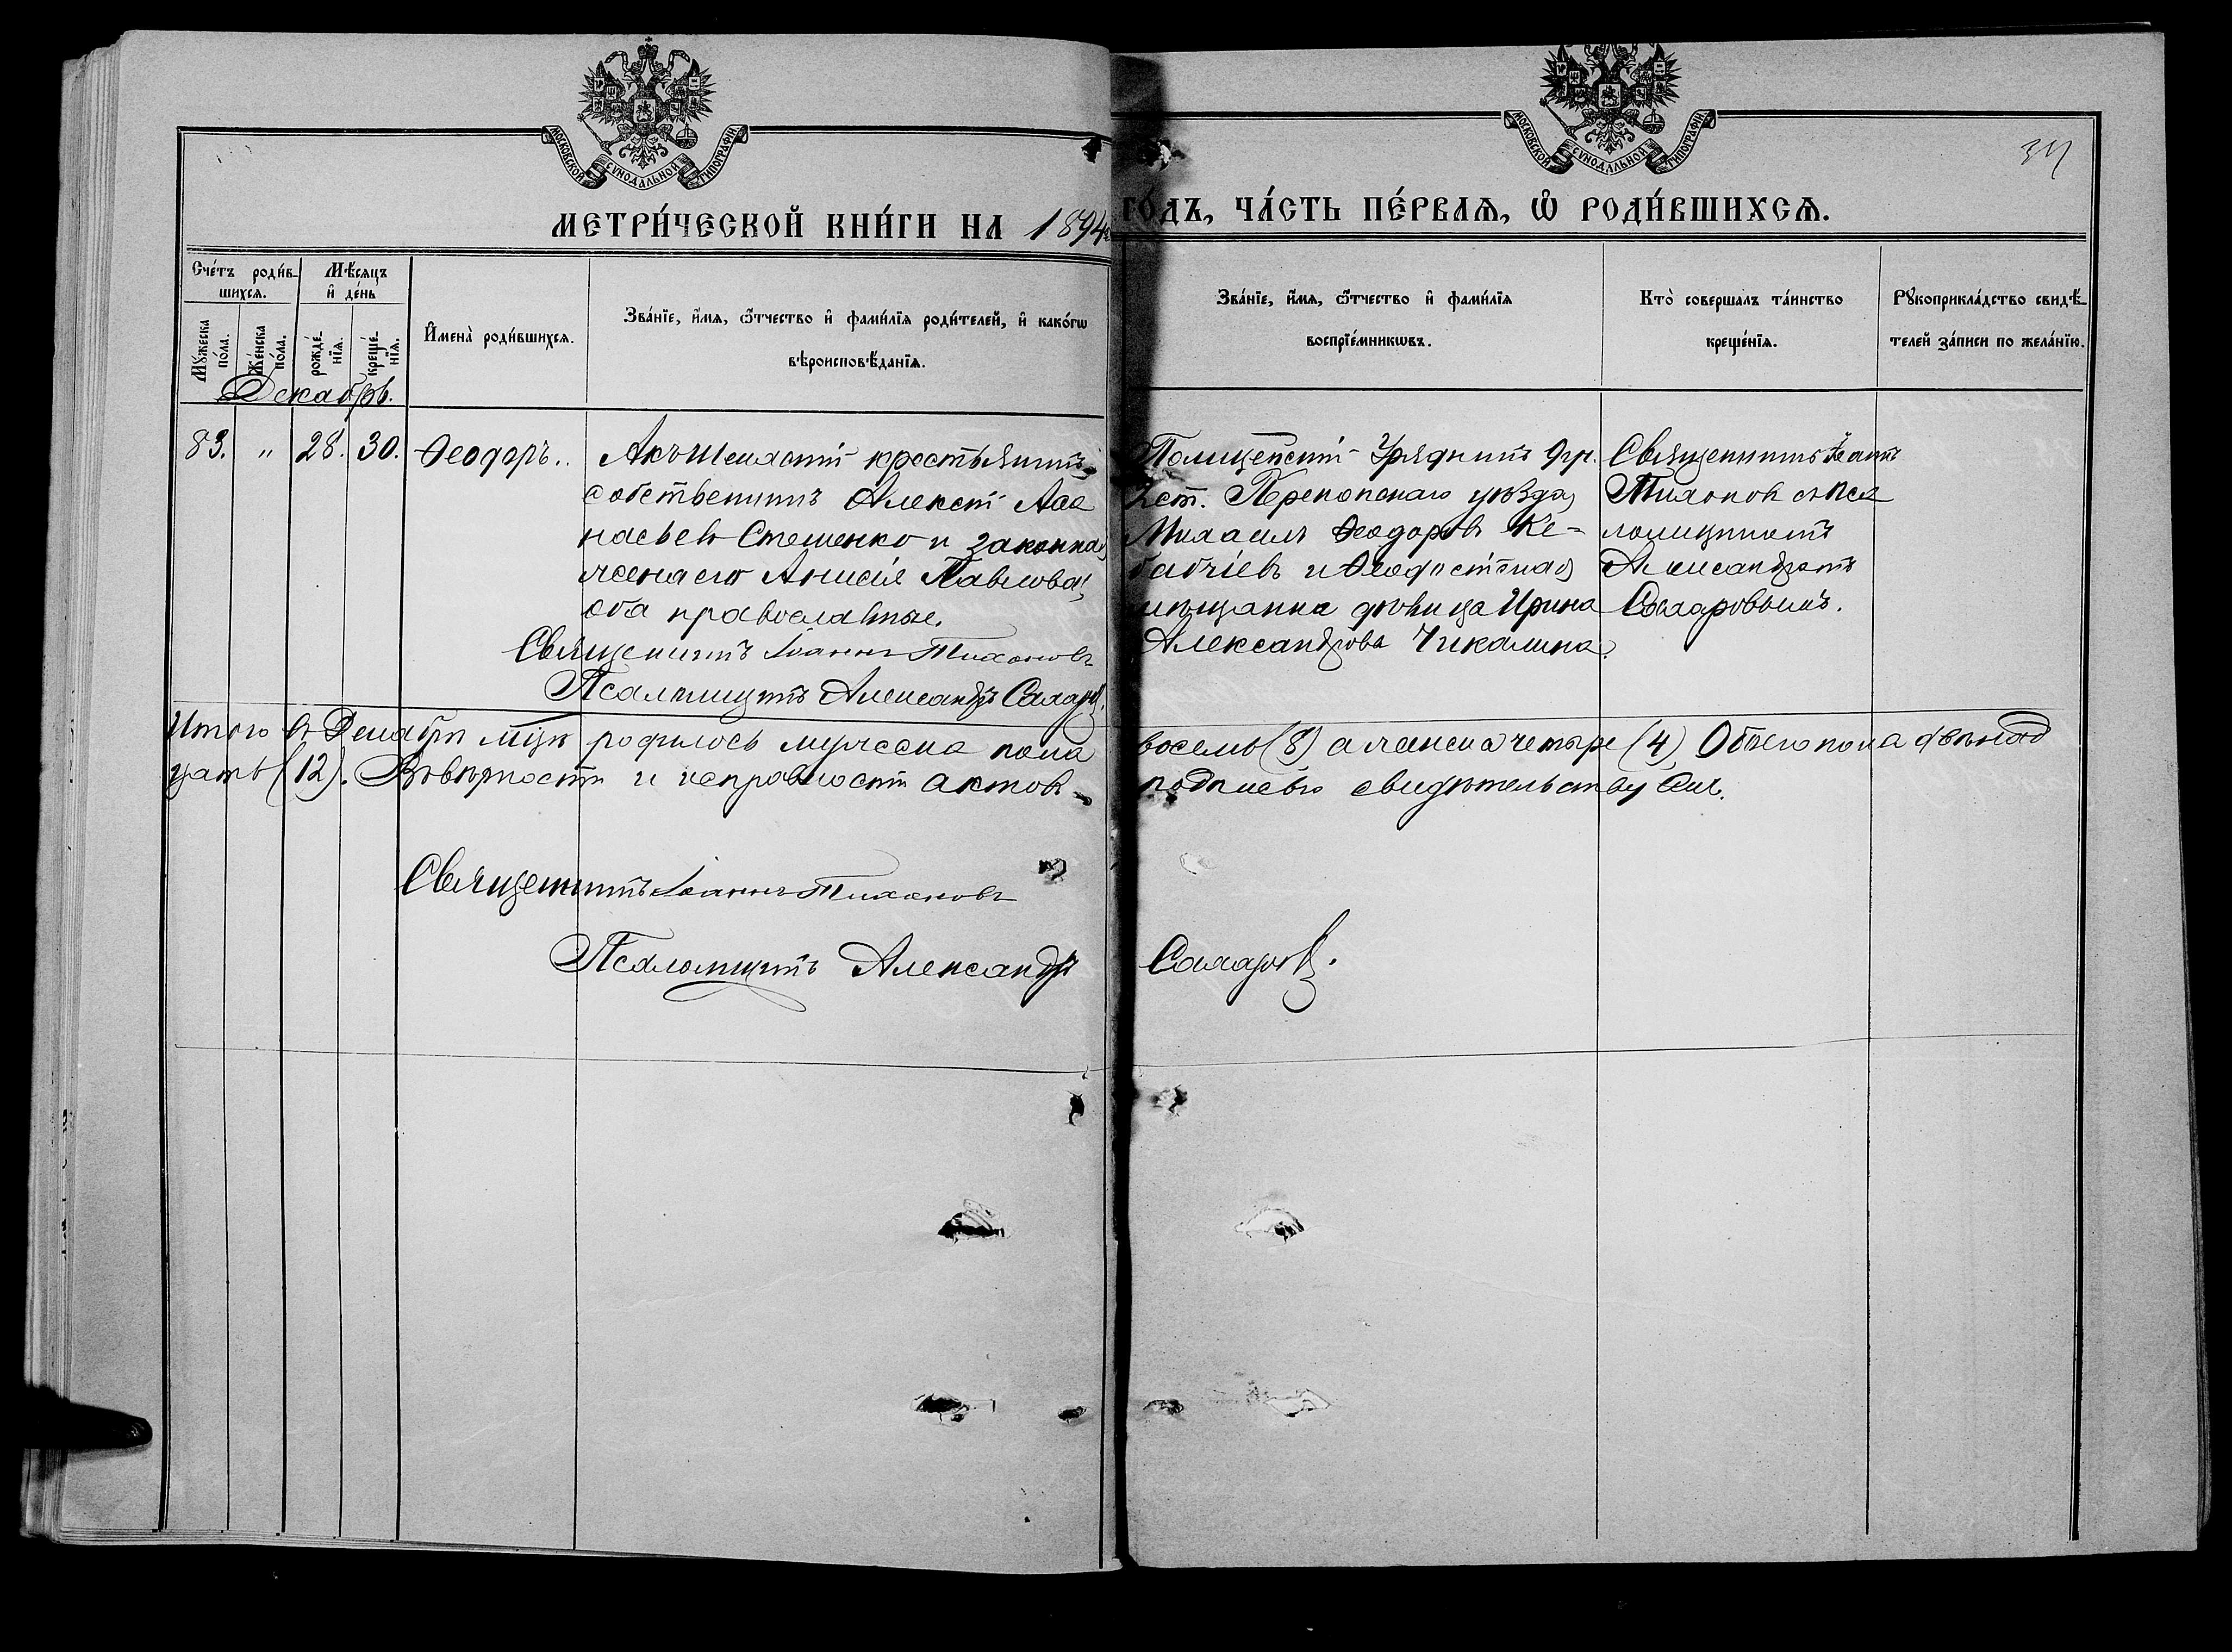 МОСКОВСКОЙ СУНОДАЛЬНОЙ ТИПОГРАФІИ
МОСКОВСКОЙ СУНОДАЛЬНОЙ ТИПОГРАФІИ
34
МЕТРИ́ЧЕСКОЙ КНИ́ГИ НА 1894 ГО́ДЪ, ЧА́СТЬ ПЕ́РВАѦ, Ѡ҆ РОДИ́ВШИХСѦ.
Сче́тъ роди́в-
шихсѧ.
Мѣ́сѧцъ
и҆ де́нь
Мꙋ́жеска
по́ла.
Же́нска
по́ла.
рожде́-
нїѧ.
креще́-
нїѧ.
И҆мена̀ роди́вшихсѧ.
Зва́нїе, и҆́мѧ, ѻ҆́тчество и҆ фами́лїѧ роди́телей, и҆ како́гѡ
вѣроисповѣ́данїѧ.
Зва́нїе, и҆́мѧ, ѻ҆́тчество и҆ фами́лїѧ
воспрїе́мникѡвъ.
Кто̀ соверша́лъ та́инство
креще́нїѧ.
Рꙋкоприкла́дство свидѣ́-
телей за́писи по жела́нїю.
Декабрь.
83. " 28. 30. Ѳеодоръ..
крестьянинъ
собственникъ Алексѣй Аѳа
насьевъ Стешенко и законная
жена его Анисія Павлова,
оба православные.
Священникъ Іоаннъ Тихоновъ
Псаломщикъ Александръ Сахаровъ.
Полицейскій Урядникъ 9 гр.
2 ст. Перекопскаго уѣзда
Михаилъ Ѳеодоровъ Ке-
бабчіевъ и Ѳеодосійская
мѣщанка дѣвица Ирина
Александрова Чикалина.
Священникъ Іоаннъ
Тихоновъ съ Пса
ломщикомъ
Александромъ
Сахаровымъ.
Итого въ Декабрѣ мцѣ родилось мужеска пола восемь (8) а женска четыре (4) Обоего пола двѣнад
цать (12). Въ вѣрности и исправности актовъ подписью свидѣтельствуемъ.
Священникъ Іоаннъ Тихоновъ
Псаломщикъ Александръ Сахаровъ.